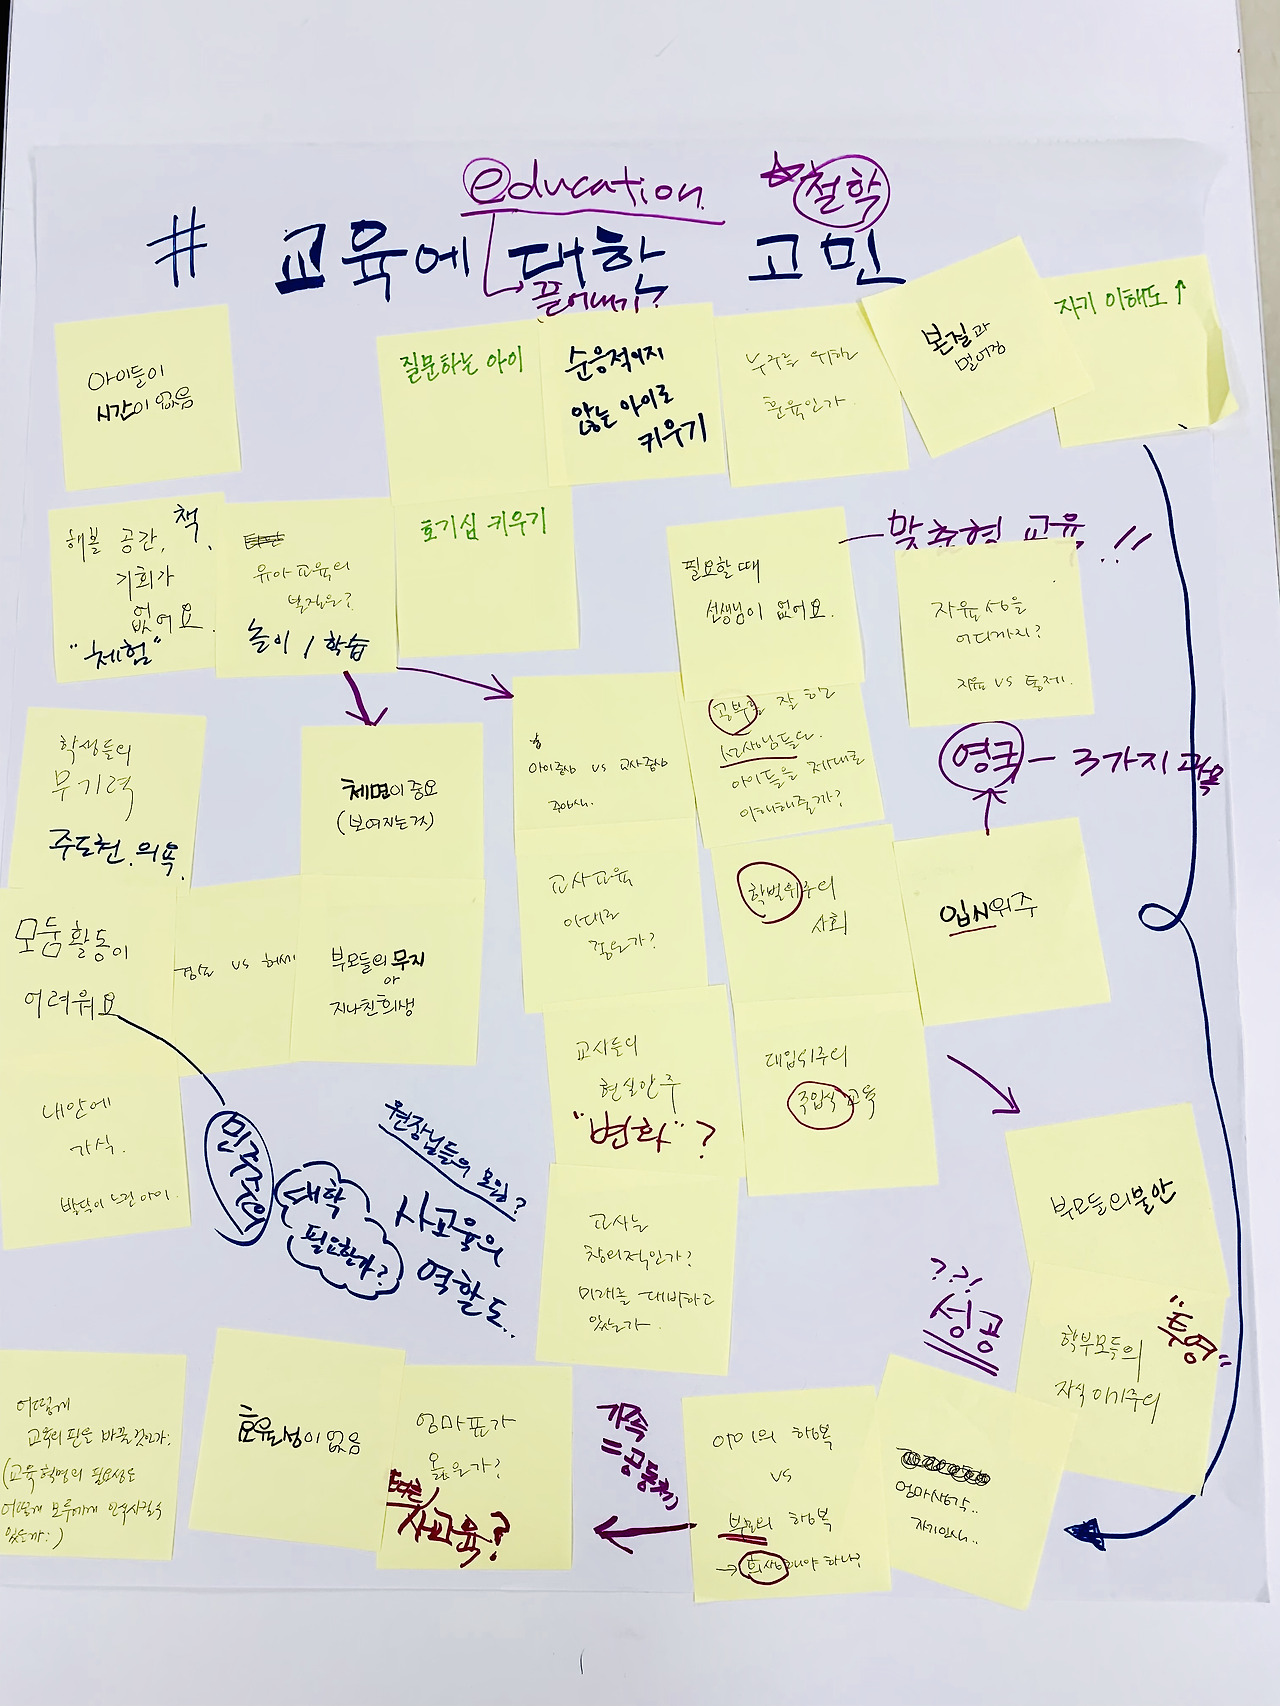 education
철학
# 교육에 대한 고민
끌어내기?
아이들이
시간이 없음
질문하는 아이
순응적이지
않는 아이로
키우기
누구를 위한
본질과
멀어짐
자기 이해도 ↑
해볼 공간, 책,
기회가
없어요.
"체험"
유아교육의
본질은?
놀이 / 학습
호기심 키우기
필요할 때
선생님이 없어요.
맞춤형 교육!!
자율성을
어디까지?
자율 vs 통제.
학생들의
무기력
주도현. 의욕.
체면이 중요
(보여지는 것)
아이중심 vs 교사중심
공부를 잘 하고
선생님들
아이들을 제대로
이해해줄까?
영국 - 3가지 과목
모둠활동이
어려워요
vs 허세
부모들의 무지
지나친 희생
교사교육
이대로
좋은가?
학벌위주의
사회
입시위주
교사들의
현실안주
"변화"?
대입위주의
주입식 교육
내 안에
가식.
발달이 느린 아이.
민주주의
대학
필요한가?
원장님들의 모임?
사교육의
역할도..
교사는
창의적인가?
미래를 대비하고
있는가
부모들의 불안
???
성공
학부모들의
자식 이기주의
"투영"
어떻게
교육의 판을 바꿀것인가?
(교육혁명의 필요성을
어떻게 모두에게 인식시킬수
있는가?)
효율성이 없음
엄마표가
옳은가?
사교육?
가족
=공동체
아이의 행복
vs
부모의 행복
→ 희생해야 하나?
엄마생각..
자기인식..